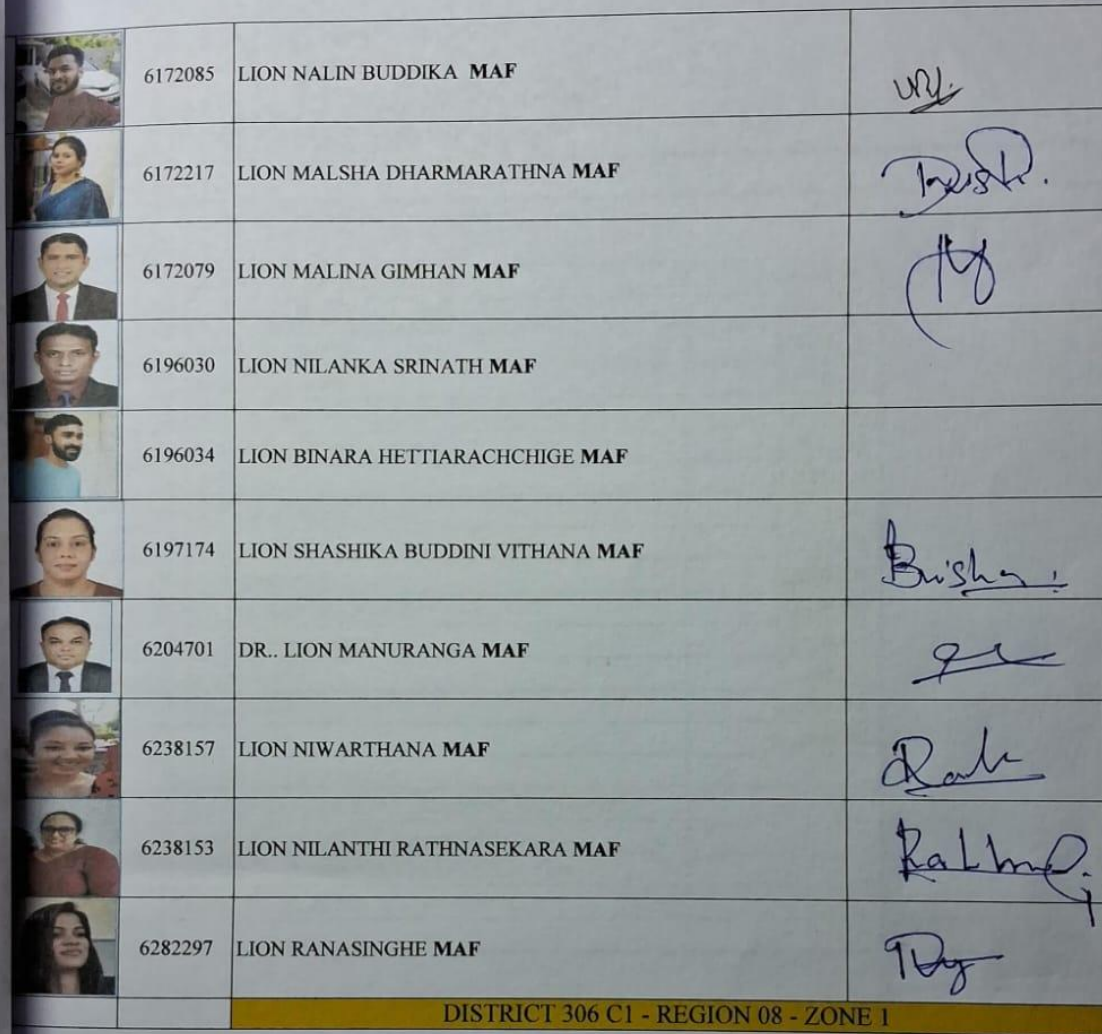 6172085 LION NALIN BUDDIKA MAF
6172217 LION MALSHA DHARMARATHNA MAF
6172079 LION MALINA GIMHAN MAF
6196030 LION NILANKA SRINATH MAF
6196034 LION BINARA HETTIARACHCHIGE MAF
6197174 LION SHASHIKA BUDDINI VITHANA MAF
6204701 DR.. LION MANURANGA MAF
6238157 LION NIWARTHANA MAF
6238153 LION NILANTHI RATHNASEKARA MAF
6282297 LION RANASINGHE MAF
DISTRICT 306 C1 - REGION 08 - ZONE 1